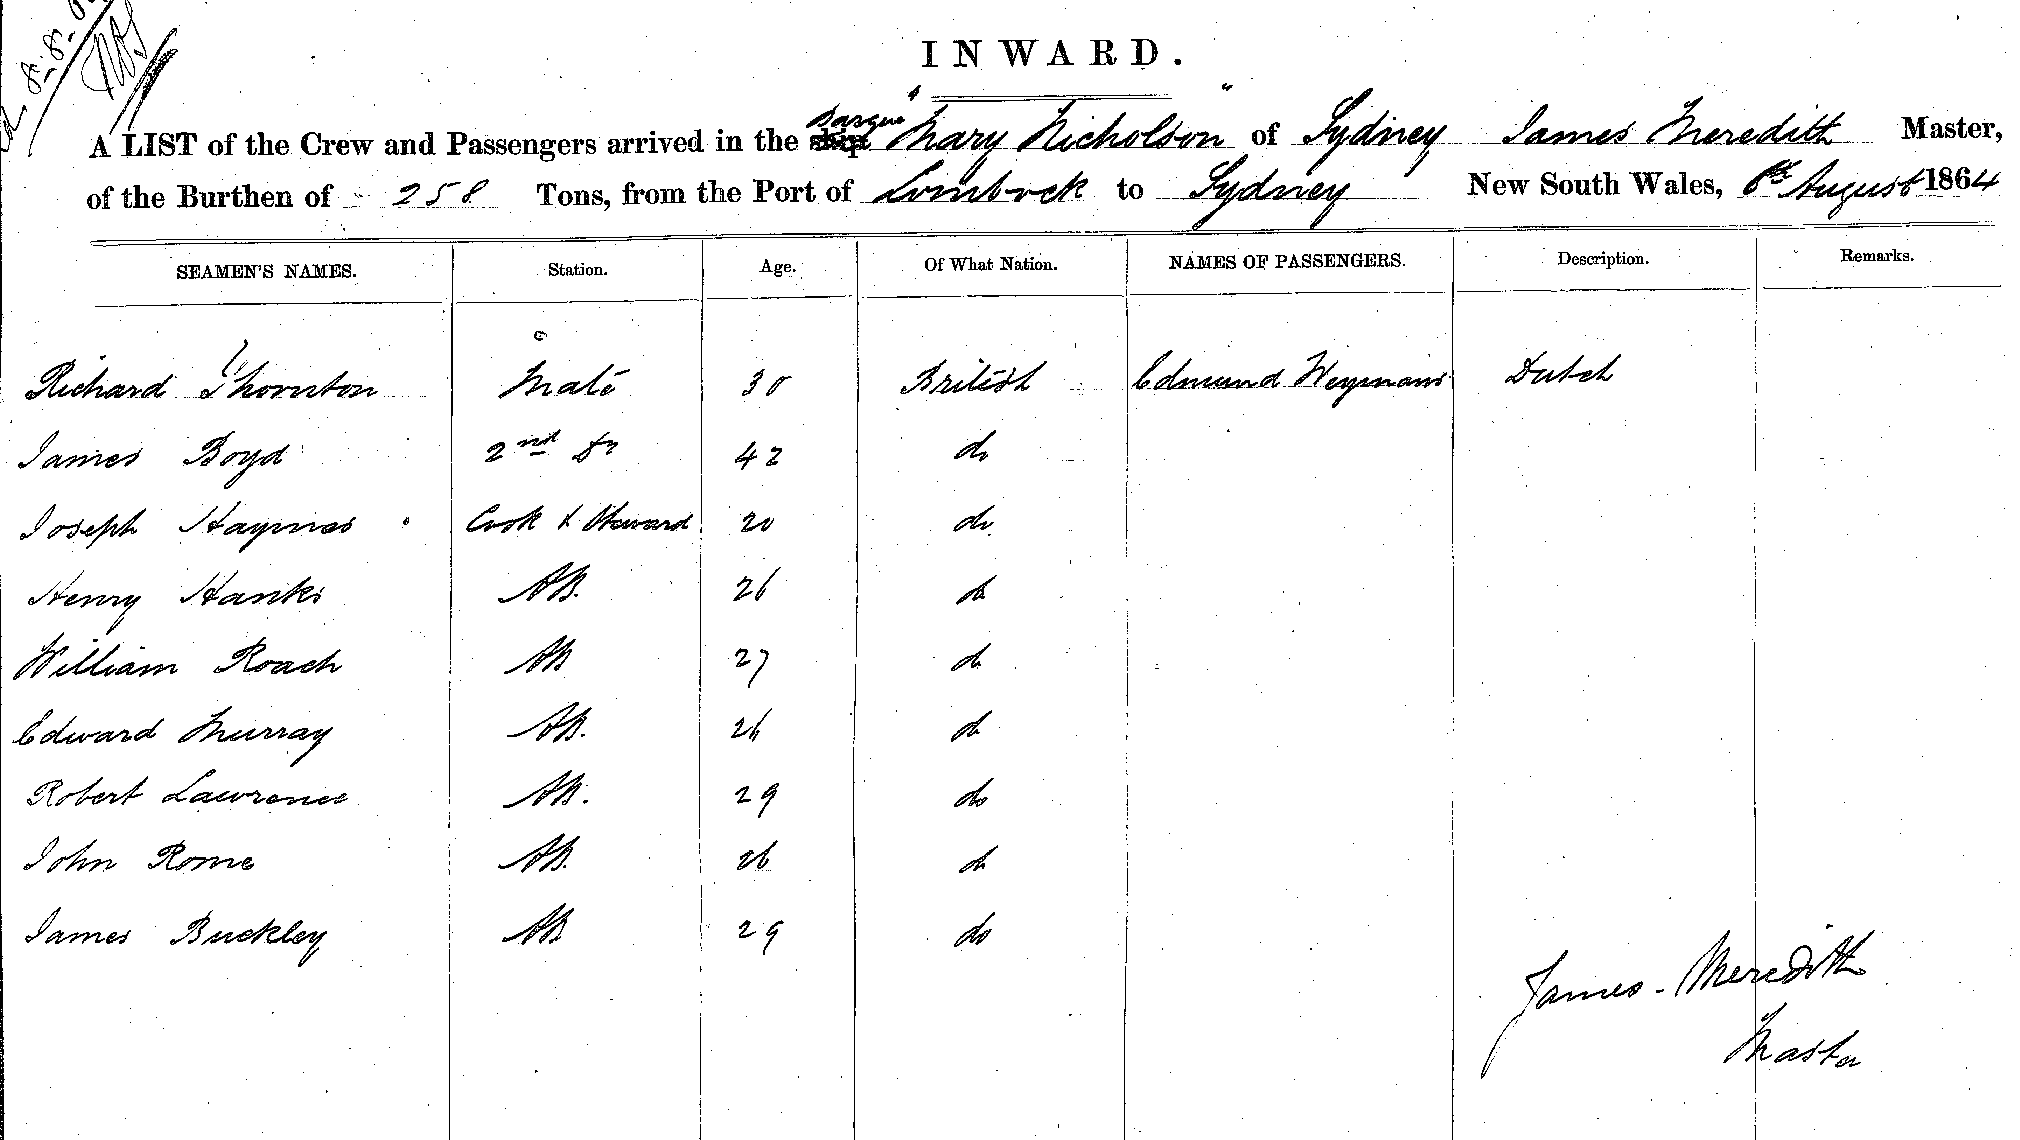 8.8.
INWARD.
A LIST of the Crew and Passengers arrived in the ship Barque "Mary Nicholson" of Sydney James Meredith Master,
of the Burthen of 258 Tons, from the Port of Lombock to Sydney New South Wales, 6th August 1864
SEAMEN'S NAMES. Station. Age. Of What Nation. NAMES OF PASSENGERS. Description. Remarks.
Richard Thornton Mate 30 British Edmund Weymans Dutch
James Boyd 2nd Do 42 do
Joseph Haymes Cook & Steward 20 do
Henry Hanks AB. 26 do
William Roach AB 27 do
Edward Murray AB. 26 do
Robert Lawrence AB. 29 do
John Rome AB. 26 do
James Buckley AB 29 do
James Meredith
Master